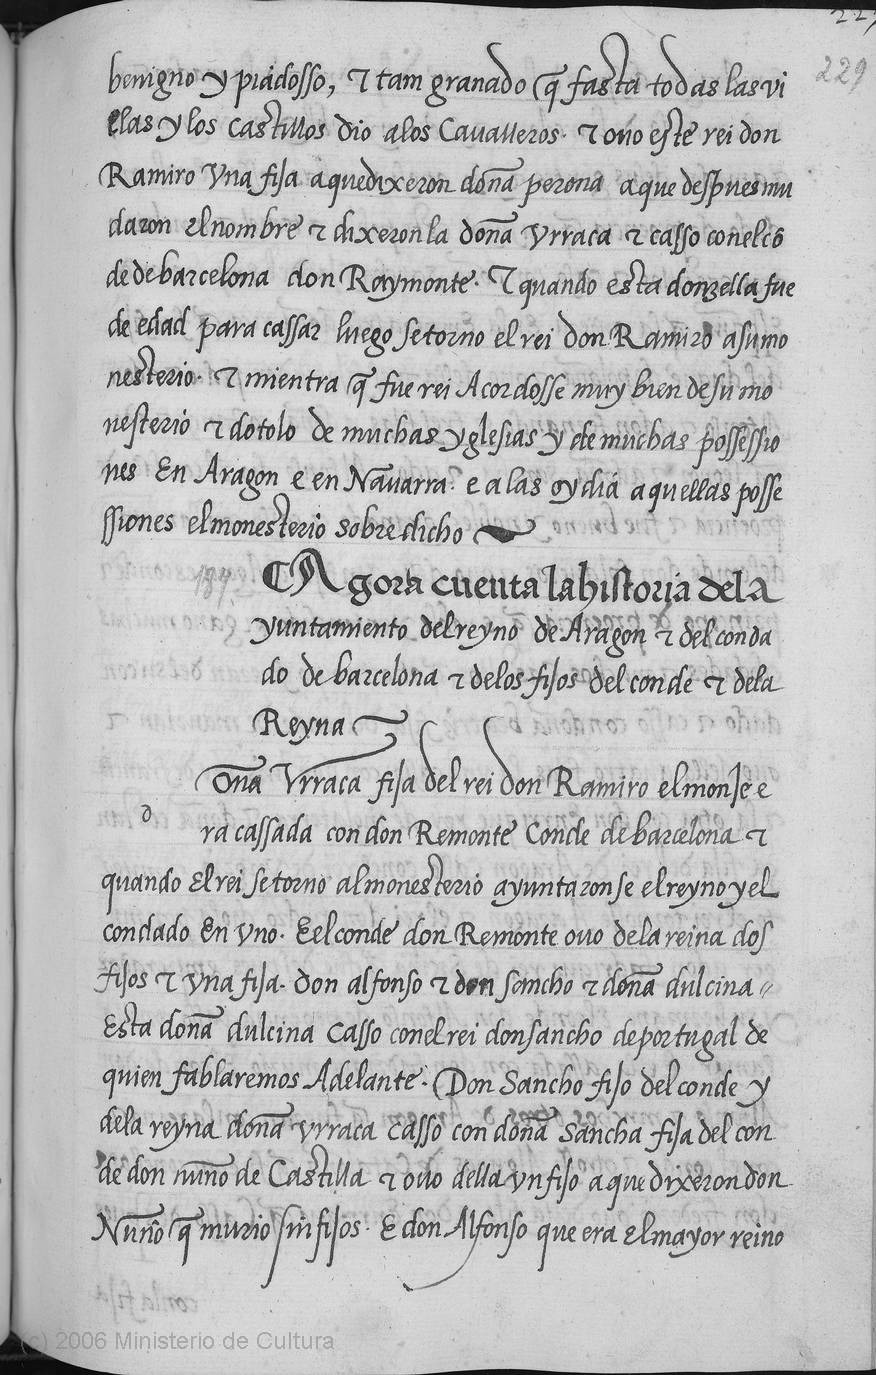 227
229
benigno y piadosso, τ tam granado q̃ fasta todas las vi
llas y los castillos dio a los Cavalleros. τ ovo este rei don
Ramiro vna fija a que dixeron doña perona a que despues mu
daron el nombre τ dixeron la doña vrraca τ casso con el cõ
de de barcelona don Raymonte. τ quando esta donzella fue
de edad para cassar luego se torno el rei don Ramiro a su mo
nesterio. τ mientra q̃ fue rei Acordosse muy bien de su mo
nesterio τ dotolo de muchas yglesias y de muchas possessio
nes En Aragon e en Navarra. e a las oy dia aquellas posse
ssiones el monesterio sobre dicho
Agora cuenta la historia del a
yuntamiento del reyno de Aragon τ del conda
do de barcelona τ de los fijos del conde τ de la
Reyna
d
oña Vrraca fija del rei don Ramiro el monje e
ra cassada con don Remonte Conde de barcelona τ
quando el rei se torno al monesterio ayuntaronse el reyno y el
condado En vno. E el conde don Remonte ovo de la reina dos
fijos τ vna fija. don alfonso τ don sancho τ doña dulcina
Esta doña dulcina casso con el rei don sancho de portugal de
quien fablaremos Adelante. Don Sancho fijo del conde y
de la reyna doña vrraca casso con doña Sancha fija del con
de don nuño de Castilla τ ovo della vn fijo a que dixeron don
Nuño q̃ murio sin fijos. E don Alfonso que era el mayor reino
(c) 2006 Ministerio de Cultura